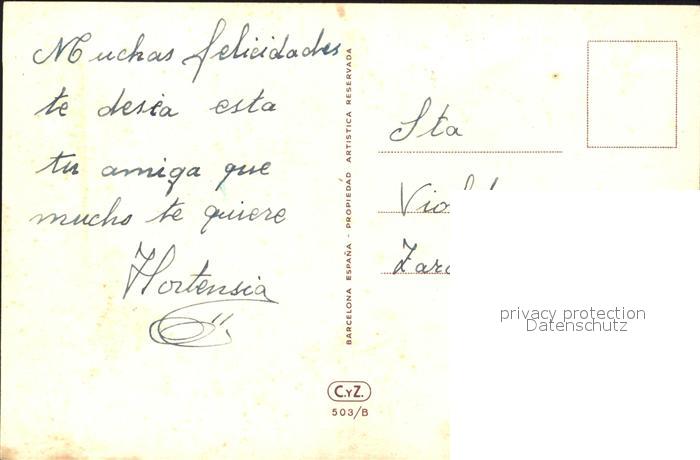 Muchas felicidades
te desea esta
tu amiga que
mucho te quiere
Hortensia
BARCELONA ESPAÑA - PROPIEDAD ARTISTICA RESERVADA
C.Y Z.
503/B
Sta
privacy protection
Datenschutz